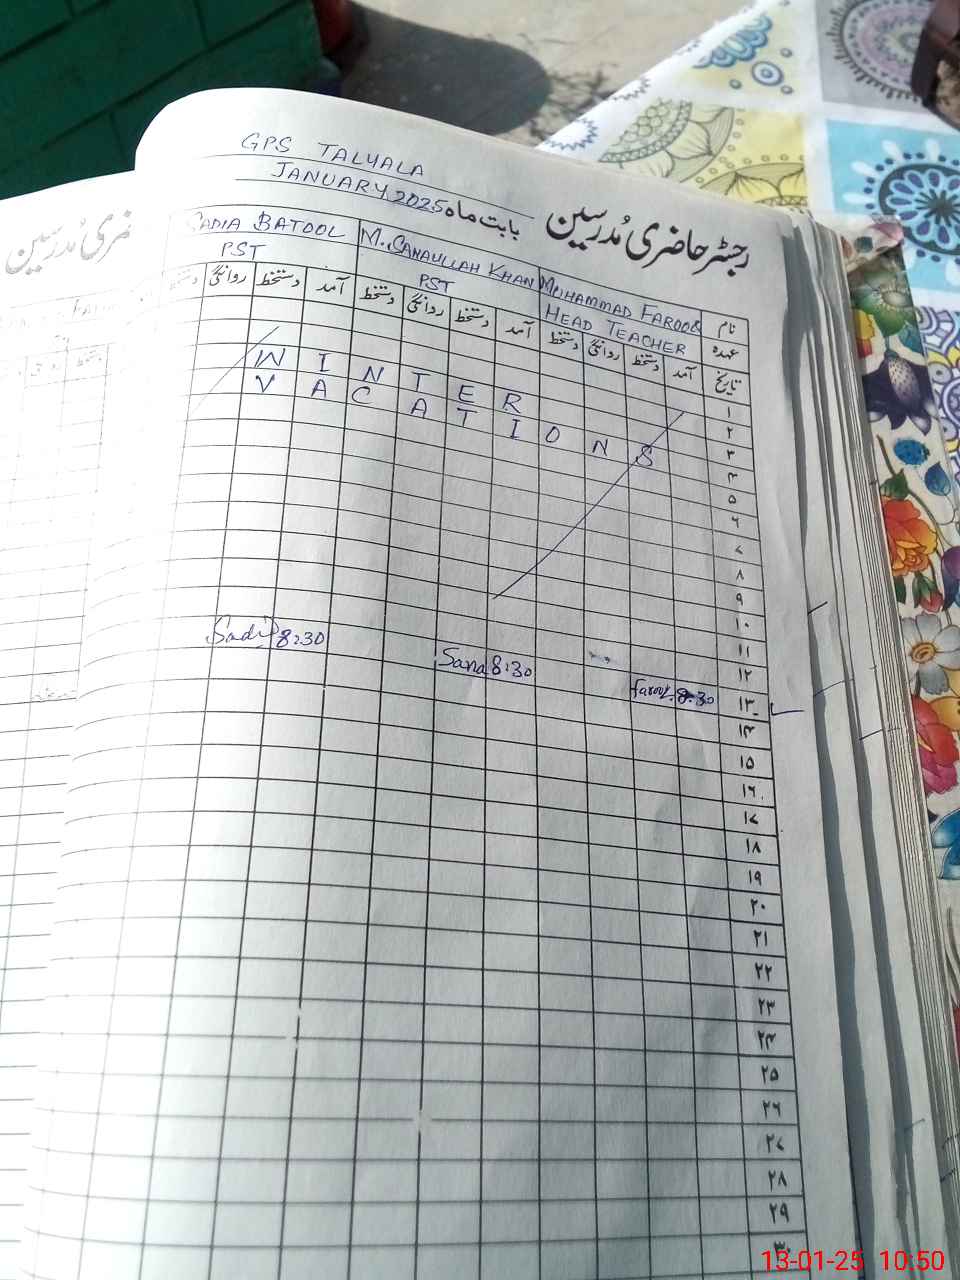 GPS TALYALA
JANUARY 2025 بابت ماہ رجسٹر حاضری مُدرسین
نام MUHAMMAD FAROOQ M. SANAULLAH KHAN SADIA BATOOL
عہدہ HEAD TEACHER PST PST
تاریخ آمد دستخط روانگی دستخط آمد دستخط روانگی دستخط آمد دستخط روانگی دستخط
۱
۲
۳
۴
۵
۶
۷
۸
۹
۱۰
۱۱
۱۲
۱۳
۱۴
۱۵
۱۶
۱۷
۱۸
۱۹
۲۰
۲۱
۲۲
۲۳
۲۴
۲۵
۲۶
۲۷
۲۸
۲۹
۳۰
WINTER
VACATIONS
Sadia 8:30
Sana 8:30
farooq 8:30
دستخط
13-01-25 10:50